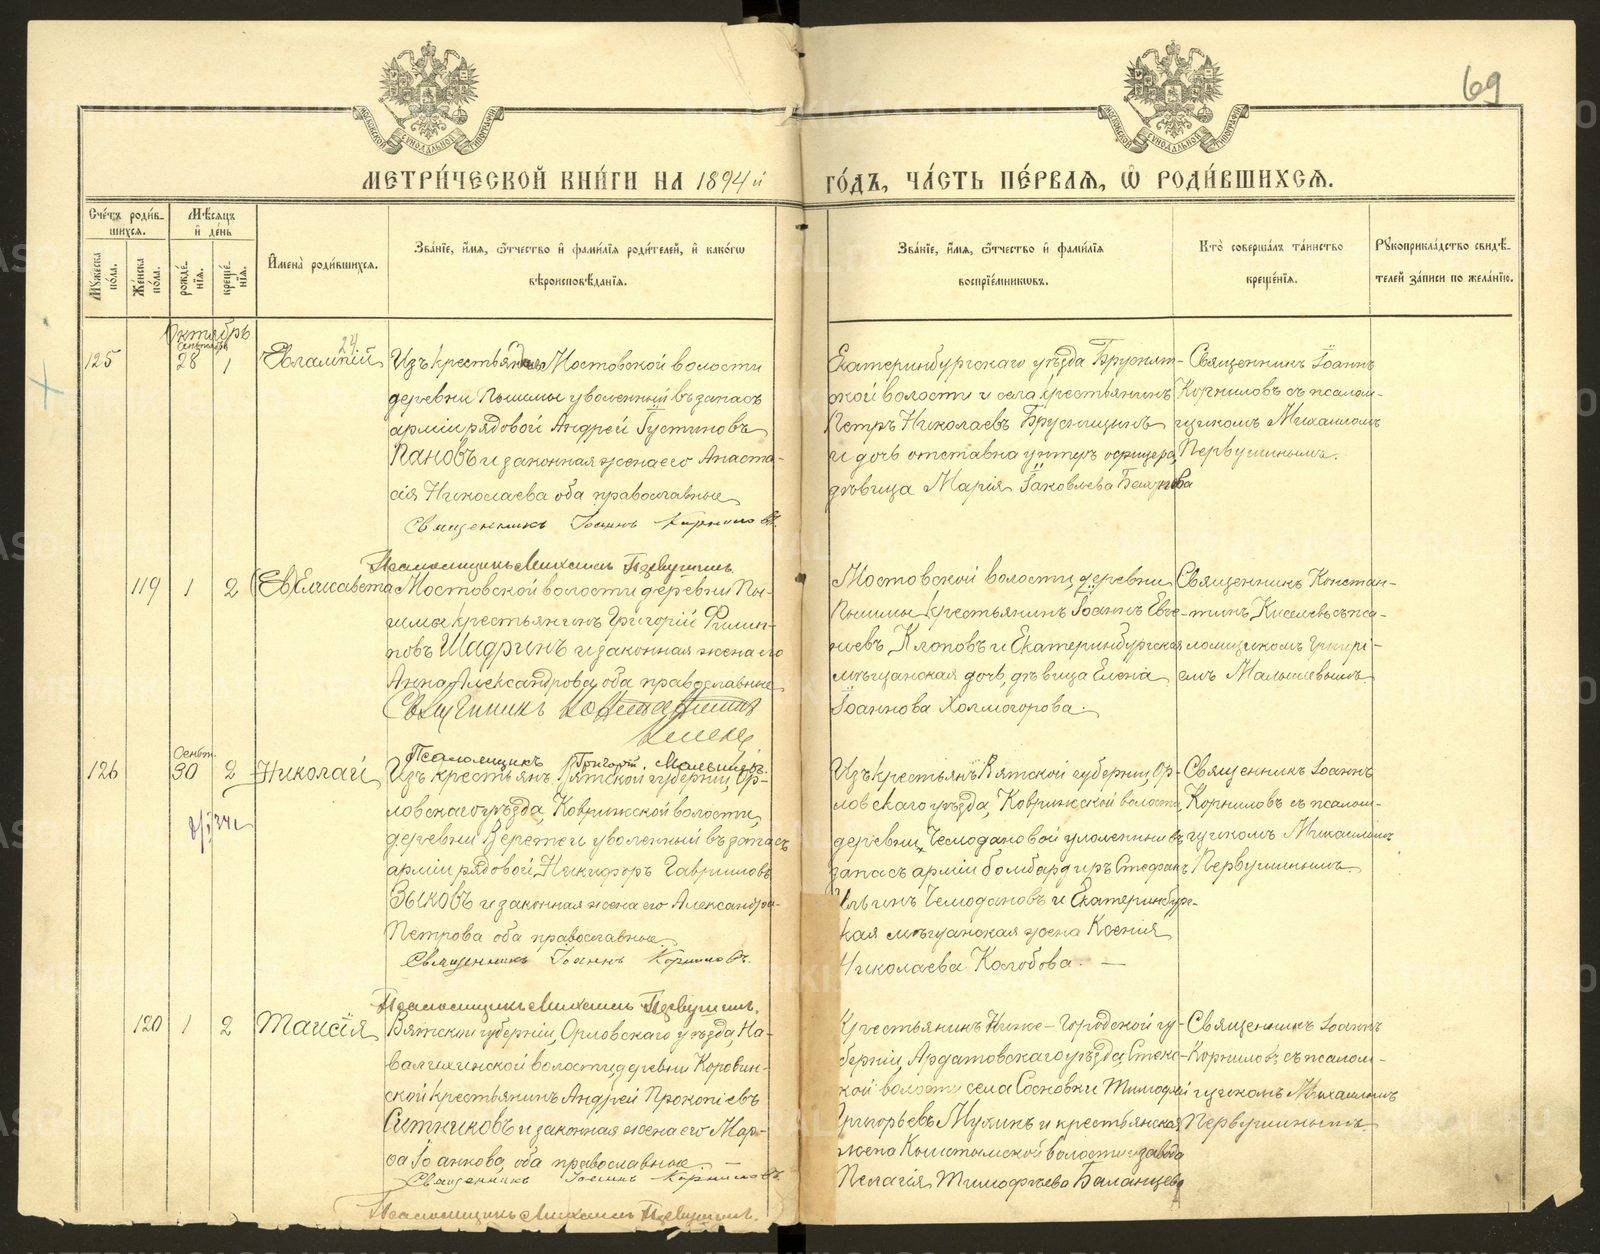 69
МОСКОВСКОЙ СѴНОДАЛЬНОЙ ТИПОГРАФІИ
МОСКОВСКОЙ СѴНОДАЛЬНОЙ ТИПОГРАФІИ
МЕТРИ́ЧЕСКОЙ КНИ́ГИ НА 1894й ГО́ДЪ, ЧА́СТЬ ПЕ́РВАѦ, Ѽ РОДИ́ВШИХСѦ.
Сче́тъ роди́вшихсѧ.
Мꙋ́жеска по́ла.
Же́нска по́ла.
Мѣ́сѧцъ и́ де́нь
рожде́нїѧ.
креще́нїѧ.
И́мена̀ роди́вшихсѧ.
Зва́нїе, и́мѧ, ѻ҆́тчество и́ фами́лїѧ роди́телей, и́ како́гѡ
вѣроисповѣ́данїѧ.
Зва́нїе, и́мѧ, ѻ҆́тчество и́ фами́лїѧ
воспрїе́мникѡвъ.
Кто̀ соверша́лъ та́инство
креще́нїѧ.
Рꙋкоприкла́дство свидѣ́телей за́писи по жела́нїю.
Октябрь
Сентябрь
125
28
1
24.
Евлампій
Изъ крестьянъ Мостовской волости
деревни Пышмы уволенный въ запасъ
арміи рядовой Андрей Густиновъ
Пановъ и законная жена его Анаста-
сія Николаева оба православные
Священникъ Іоаннъ Корниловъ.
Псаломщикъ Михаилъ Первушинъ.
Екатеринбургскаго уѣзда Бруснят-
ской волости и села крестьянинъ
Петръ Николаевъ Брусницынъ
и дочь отставна унтеръ офицера,
дѣвица Марія Іаковлева
Священникъ Іоаннъ
Корниловъ съ псалом-
щикомъ Михаиломъ
Первушинымъ.
119
1
2
Елисавета
Мостовской волости деревни Пы-
шмы крестьянинъ Григорій Филип-
повъ Шадринъ и законная жена его
Анна Александрова, оба православные
Священникъ Константинъ
Псаломщикъ Григорій Малышевъ.
Мостовской волости, деревни
Пышмы крестьянинъ Іоаннъ Евге-
ніевъ Клоповъ и Екатеринбургская
мѣщанская дочь, дѣвица Елена
Іоаннова Холмогорова.
Священникъ Констан-
тинъ Киселевъ съ пса-
ломщикомъ Григорі-
емъ Малышевымъ.
126
Сент.
30
2
Николай
Изъ крестьянъ Вятской губерніи, Ор-
ловскаго уѣзда, Коврижской волости,
деревни Веретеи уволенный въ запасъ
арміи рядовой Никифоръ Гавриловъ
Зыковъ и законная жена его Александра
Петрова оба православные.
Священникъ Іоаннъ Корниловъ.
Псаломщикъ Михаилъ Первушинъ.
Изъ крестьянъ Вятской губерніи, Ор-
ловскаго уѣзда, Коврижской волости
деревни Чемодановой уволенный въ
запасъ арміи бомбардиръ Стефанъ
Ильинъ Чемодановъ и Екатеринбург-
ская мѣщанская жена Ксенія
Николаева Колобова. —
Священникъ Іоаннъ
Корниловъ съ псалом-
щикомъ Михаиломъ
Первушинымъ.
120
1
2
Таисія
Вятской губерніи, Орловскаго уѣзда, На-
валихинской волости, деревни Коровин-
ской крестьянинъ Андрей Прокопіевъ
Ситниковъ и законная жена его Мар-
ѳа Іоаннова, оба православные. —
Священникъ Іоаннъ Корниловъ.
Псаломщикъ Михаилъ Первушинъ.
Крестьянинъ Ниже-Городской гу-
берніи, Ардатовскаго уѣзда, Стекс-
кой волости села Сосновки Тимофей
Григорьевъ Мухинъ и крестьянская
жена Кыштымской волости и завода
Пелагія Тимофѣева Баланцева
Священникъ Іоаннъ
Корниловъ съ псалом-
щикомъ Михаиломъ
Первушинымъ.